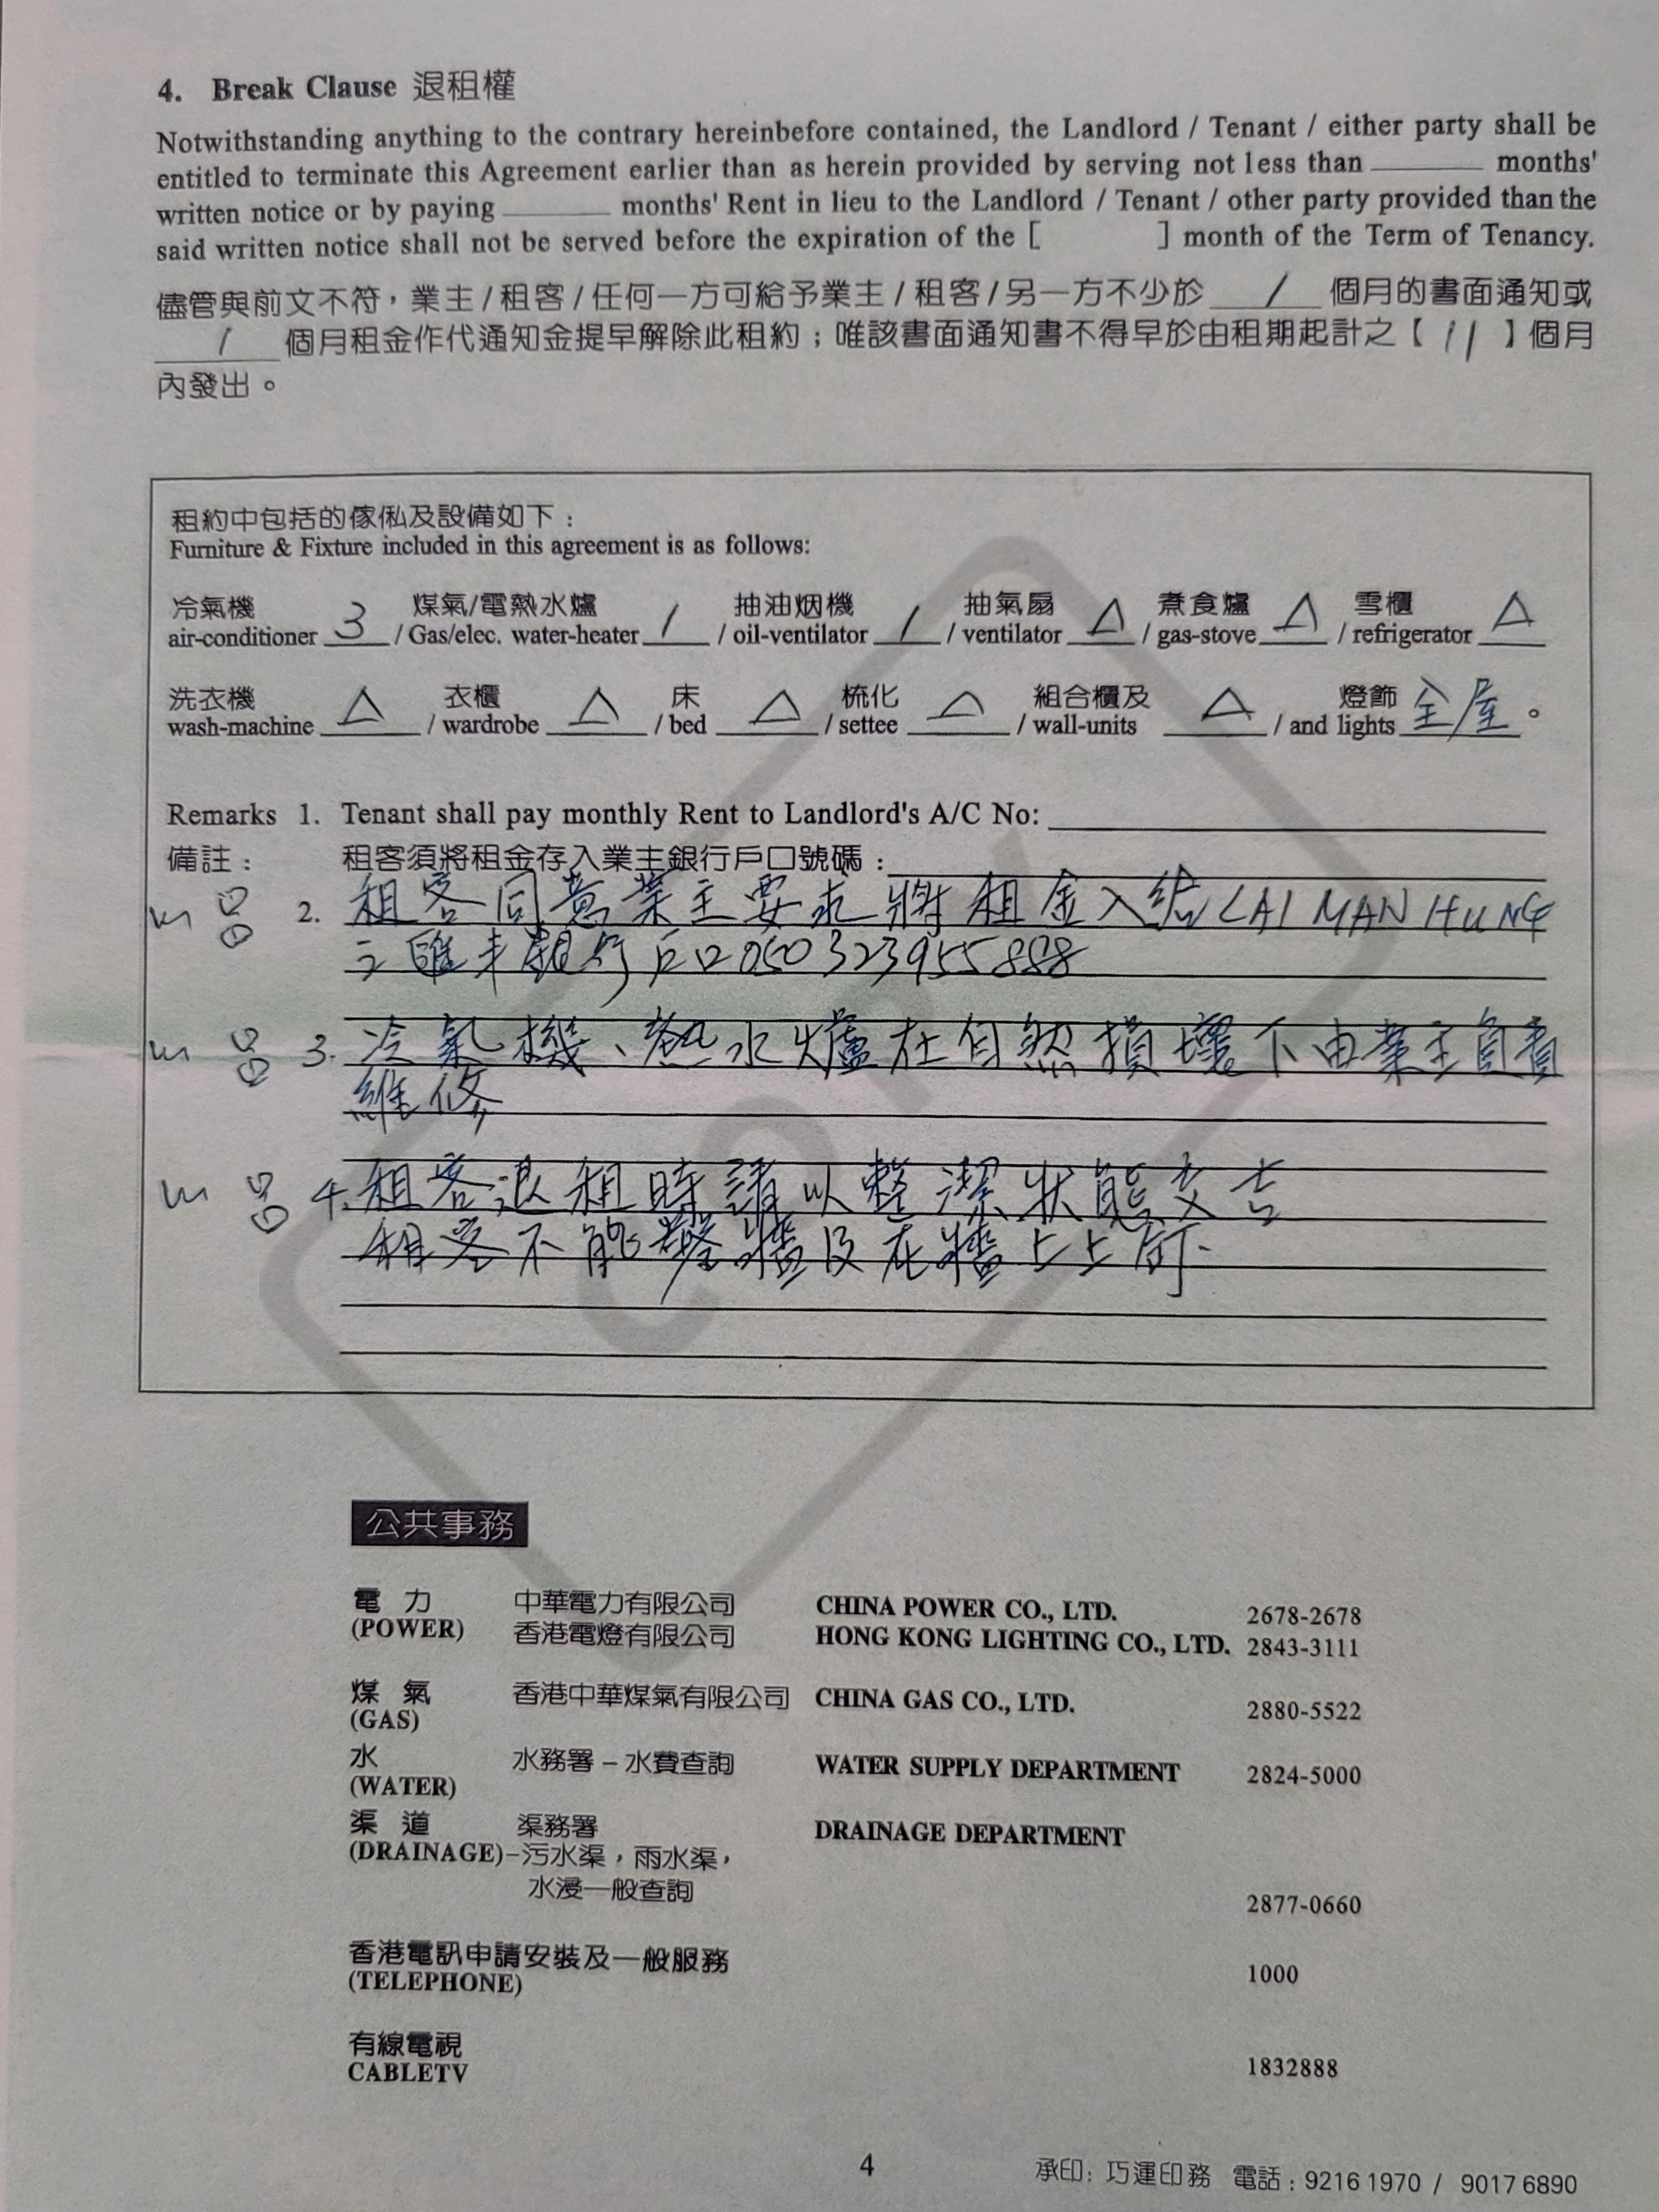 4. Break Clause 退租權
Notwithstanding anything to the contrary hereinbefore contained, the Landlord / Tenant / either party shall be
entitled to terminate this Agreement earlier than as herein provided by serving not less than ______ months'
written notice or by paying ______ months' Rent in lieu to the Landlord / Tenant / other party provided than the
said written notice shall not be served before the expiration of the [ ] month of the Term of Tenancy.
儘管與前文不符，業主/租客/任何一方可給予業主/租客/另一方不少於 1 個月的書面通知或
1 個月租金作代通知金提早解除此租約；唯該書面通知書不得早於由租期起計之【 11 】個月
內發出。
租約中包括的傢俬及設備如下：
Furniture & Fixture included in this agreement is as follows:
冷氣機 煤氣/電熱水爐 抽油烟機 抽氣扇 煮食爐 雪櫃
air-conditioner 3 / Gas/elec. water-heater 1 / oil-ventilator 1 / ventilator △ / gas-stove △ / refrigerator △
洗衣機 衣櫃 床 梳化 組合櫃及 燈飾
wash-machine △ / wardrobe △ / bed △ / settee △ / wall-units △ / and lights 全屋。
Remarks 1. Tenant shall pay monthly Rent to Landlord's A/C No:
備註： 租客須將租金存入業主銀行戶口號碼：
2. 租客同意業主要求將租金入給 LAI MAN HUNG
之匯丰銀行戶口 050323955888
3. 冷氣機、熱水爐在自然損壞下由業主負責
維修
4. 租客退租時請以整潔狀態交吉
租客不能鑿牆及在牆上上釘.
COPY
公共事務
電力 中華電力有限公司 CHINA POWER CO., LTD. 2678-2678
(POWER) 香港電燈有限公司 HONG KONG LIGHTING CO., LTD. 2843-3111
煤氣 香港中華煤氣有限公司 CHINA GAS CO., LTD. 2880-5522
(GAS)
水 水務署 – 水費查詢 WATER SUPPLY DEPARTMENT 2824-5000
(WATER)
渠道 渠務署 DRAINAGE DEPARTMENT
(DRAINAGE)–污水渠，雨水渠，
水浸一般查詢 2877-0660
香港電訊申請安裝及一般服務
(TELEPHONE) 1000
有線電視
CABLETV 1832888
4
承印: 巧運印務 電話 : 9216 1970 / 9017 6890